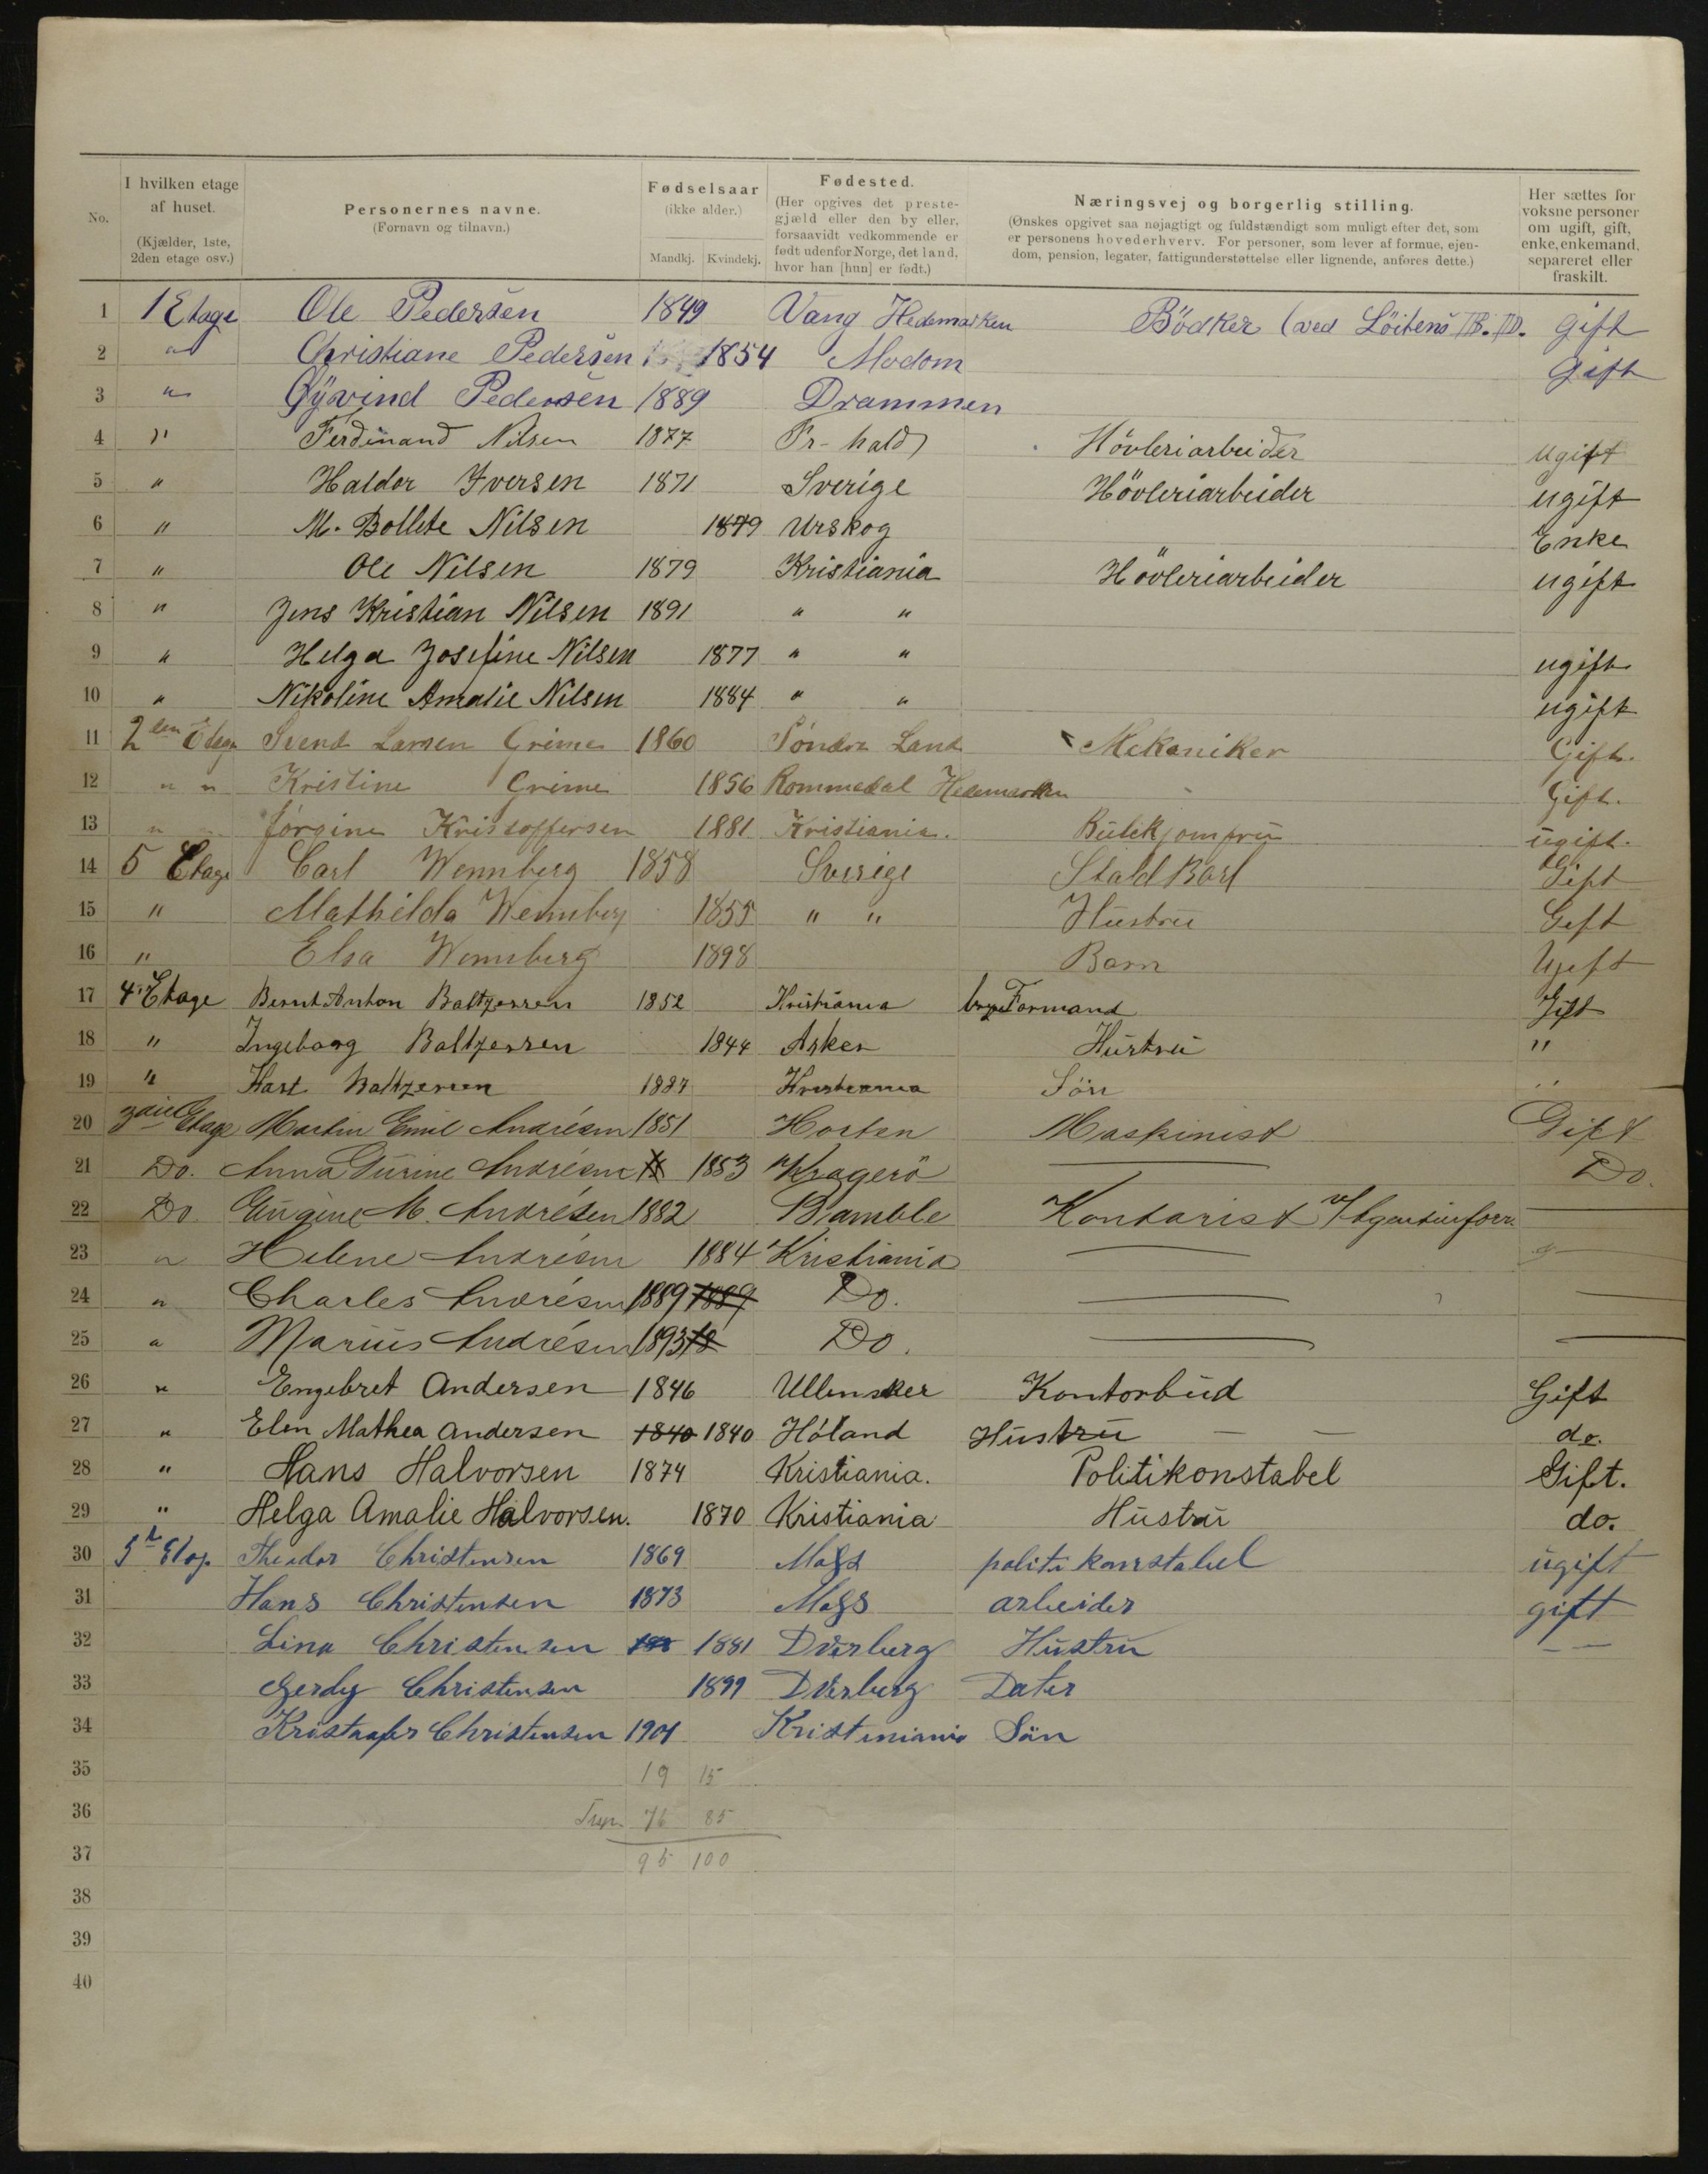 No. I hvilken etage af huset. (Kjælder, 1ste, 2den etage osv.) Personernes navne. (Fornavn og tilnavn.) Fødselsaar (ikke alder.) Mandkj. Kvindekj. Fødested. (Her opgives det prestegjæld eller den by eller, forsaavidt vedkommende er født udenfor Norge, det land, hvor han [hun] er født.) Næringsvej og borgerlig stilling. (Ønskes opgivet saa nøjagtigt og fuldstændigt som muligt efter det, som er personens hovederhverv. For personer, som lever af formue, ejendom, pension, legater, fattigunderstøttelse eller lignende, anføres dette.) Her sættes for voksne personer om ugift, gift, enke, enkemand, separeret eller fraskilt.
1 1 Etage Ole Pedersen 1849 Vang Hedemarken Bödker (ved Löitens Gift
2 " Christiane Pedersen 1854 Modom Gift
3 " Øyvind Pedersen 1889 Drammen
4 " Ferdinand Nilsen 1877 Fr-hald Hövleriarbeider ugift
5 " Haldor Iversen 1871 Sverige Hövleriarbeider ugift
6 " M. Bollete Nilsen 1849 Urskog Enke
7 " Ole Nilsen 1879 Kristiania Hövleriarbeider ugift
8 " Jens Kristian Nilsen 1891 " "
9 " Helga Josefine Nilsen 1877 " " ugift
10 " Nikoline Amalie Nilsen 1884 " " ugift
11 2den Etage Svend Larsen Grime 1860 Söndre Land Mekaniker Gift.
12 " " Kristine Grime 1856 Rommedal Hedemarken Gift.
13 " Jörgine Kristoffersen 1881 Kristiania. Butikjomfru ugift.
14 5 Etage Carl Wennberg 1858 Sverige Stald Karl Gift
15 " Mathilda Wennberg 1855 " " Hustru Gift
16 " Elsa Wennberg 1898 Barn Ugift
17 4' Etage Bernt Anton Baltzersen 1852 Kristiania Formand Gift
18 " Ingeborg Baltzersen 1844 Asker Hustru "
19 " Baltzersen 1887 Kristiania Sön "
20 3die Etage Martin Emil Andrésen 1851 Horten Maskinist Gift
21 Do. Anna Gurine Andrésen 1853 Kragerö Do.
22 Do. Eugine M. Andrésen 1882 Bamble Kontorist v/ Agenturforr.
23 " Helene Andrésen 1884 Kristiania
24 " Charles Andrésen 1889 1889 Do.
25 " Marius Andrésen 1893 18 Do.
26 " Engebret Andersen 1846 Ullensaker Kontorbud Gift
27 " Elen Mathea Andersen 1840 1840 Höland Hustru — — do.
28 " Hans Halvorsen 1874 Kristiania. Politikonstabel Gift.
29 " Helga Amalie Halvorsen. 1870 Kristiania Hustru do.
30 Theodor Christensen 1869 politi konstabel ugift
31 Hans Christensen 1873 arbeider gift
32 Lina Christensen 188 1881 Dverberg Hustru — —
33 Gerdy Christensen 1899 Dverberg Dater
34 Kristoafer Christensen 1901 Kristiniania Sön
35 19 15
36 76 85
37 95 100
38
39
40